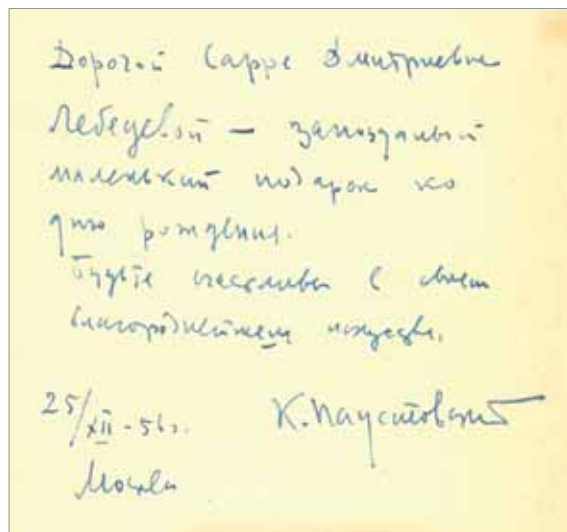 Дорогой Сарре Дмитриевне
Лебедевой — запоздалый
маленький подарок ко
дню рождения.
Будьте счастливы в своем
благороднейшем искусстве.
25/XII-56г. К. Паустовский
Москва